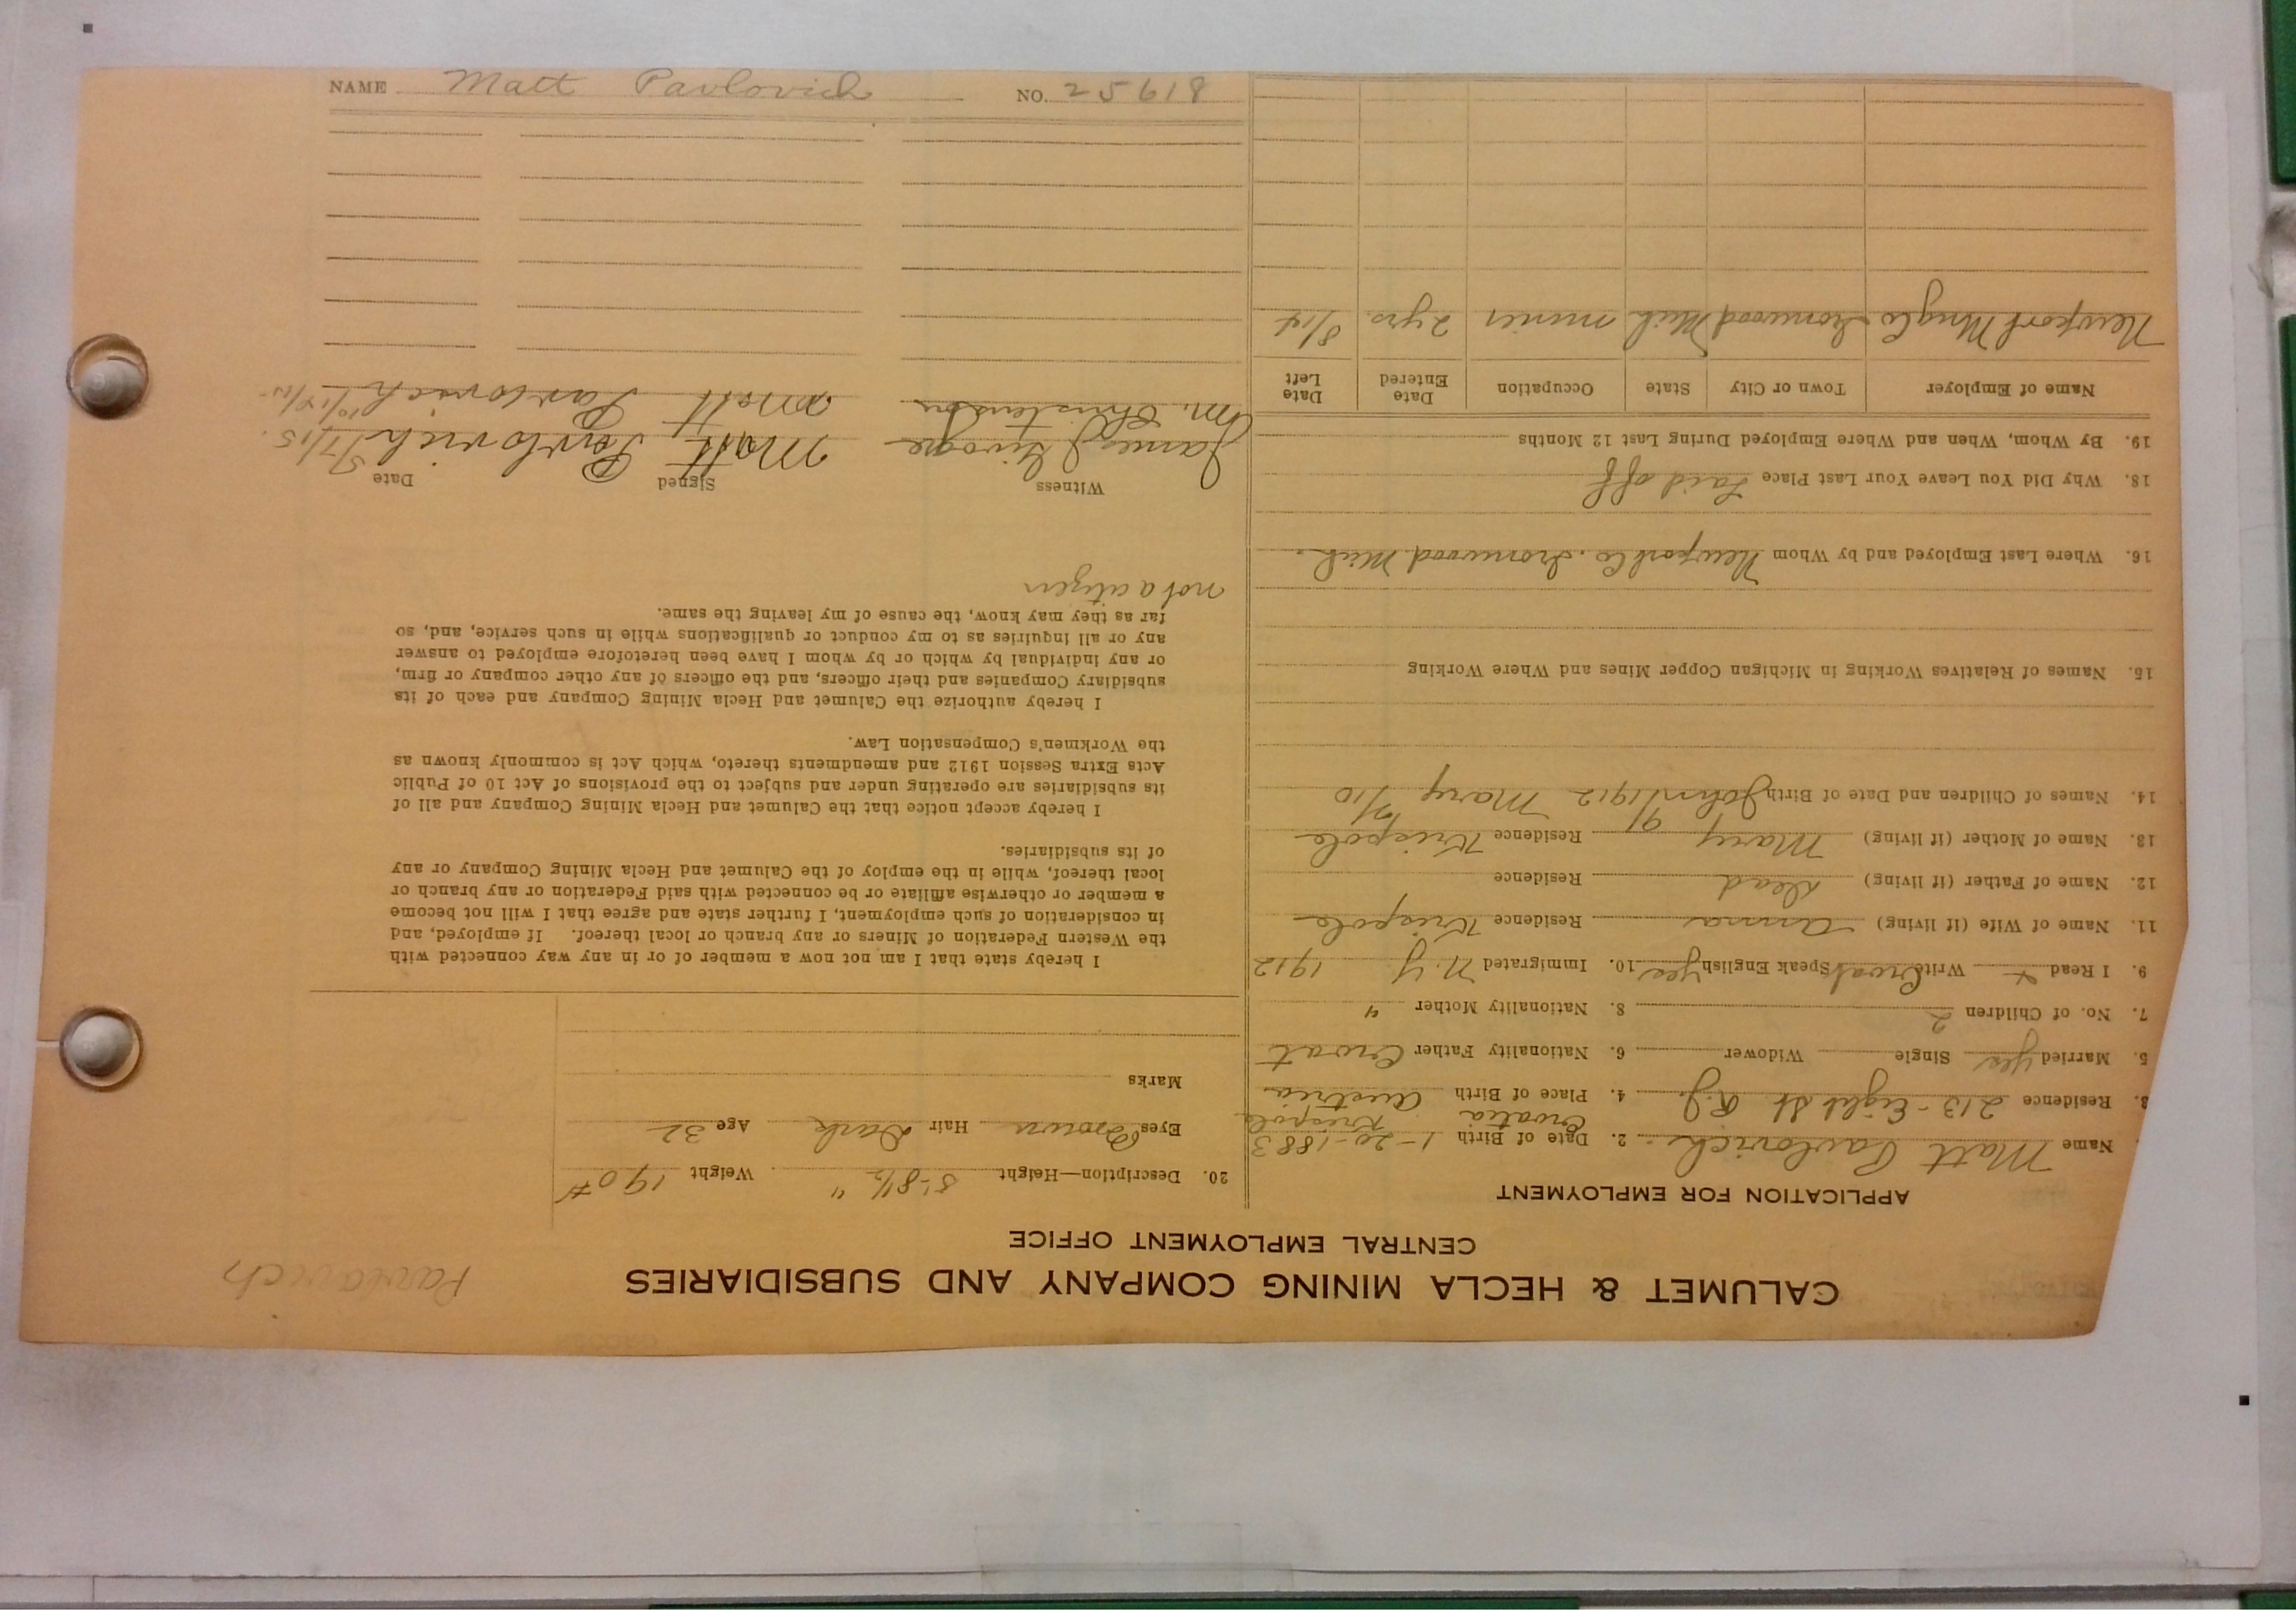 CALUMET & HECLA MINING COMPANY AND SUBSIDIARIES
CENTRAL EMPLOYMENT OFFICE
Pavlovich
APPLICATION FOR EMPLOYMENT
Name Matt Pavlovich 2. Date of Birth 1-20-1883
Croatia Krispole
3. Residence 213-Eight St R.J. 4. Place of Birth Austria
5. Married yes Single Widower 6. Nationality Father Croat
7. No. of Children 2 8. Nationality Mother "
9. I Read + Write Croat Speak English yes 10. Immigrated N.Y. 1912
11. Name of Wife (if living) Anna Residence Krispole
12. Name of Father (if living) Dead Residence
13. Name of Mother (if living) Mary Residence Krispole
14. Names of Children and Date of Birth John 9/1912 Mary 7/10
15. Names of Relatives Working in Michigan Copper Mines and Where Working
16. Where Last Employed and by Whom Newport Co. Ironwood Mich.
18. Why Did You Leave Your Last Place Laid off
19. By Whom, When and Where Employed During Last 12 Months
Name of Employer Town or City State Occupation Date Entered Date Left
Newport Mng Co Ironwood Mich Mich miner 2 yrs 8/14
20. Description—Height 5'-8½" Weight 190#
Eyes Brown Hair Dark Age 32
Marks
I hereby state that I am not now a member of or in any way connected with
the Western Federation of Miners or any branch or local thereof. If employed, and
in consideration of such employment, I further state and agree that I will not become
a member or otherwise affiliate or be connected with said Federation or any branch or
local thereof, while in the employ of the Calumet and Hecla Mining Company or any
of its subsidiaries.
I hereby accept notice that the Calumet and Hecla Mining Company and all of
its subsidiaries are operating under and subject to the provisions of Act 10 of Public
Acts Extra Session 1912 and amendments thereto, which Act is commonly known as
the Workmen's Compensation Law.
I hereby authorize the Calumet and Hecla Mining Company and each of its
subsidiary Companies and their officers, and the officers of any other company or firm,
or any individual by which or by whom I have been heretofore employed to answer
any or all inquiries as to my conduct or qualifications while in such service, and, so
far as they may know, the cause of my leaving the same.
not a citizen
Witness Signed Date
James Matt Pavlovich 5/7/15
Wm. Christensen Matt Pavlovich
NAME Matt Pavlovich NO. 25618